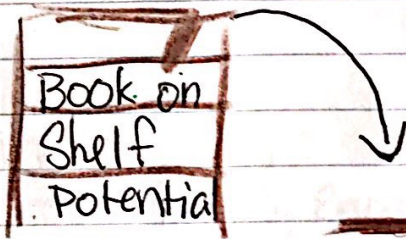 Book on
Shelf
Potential